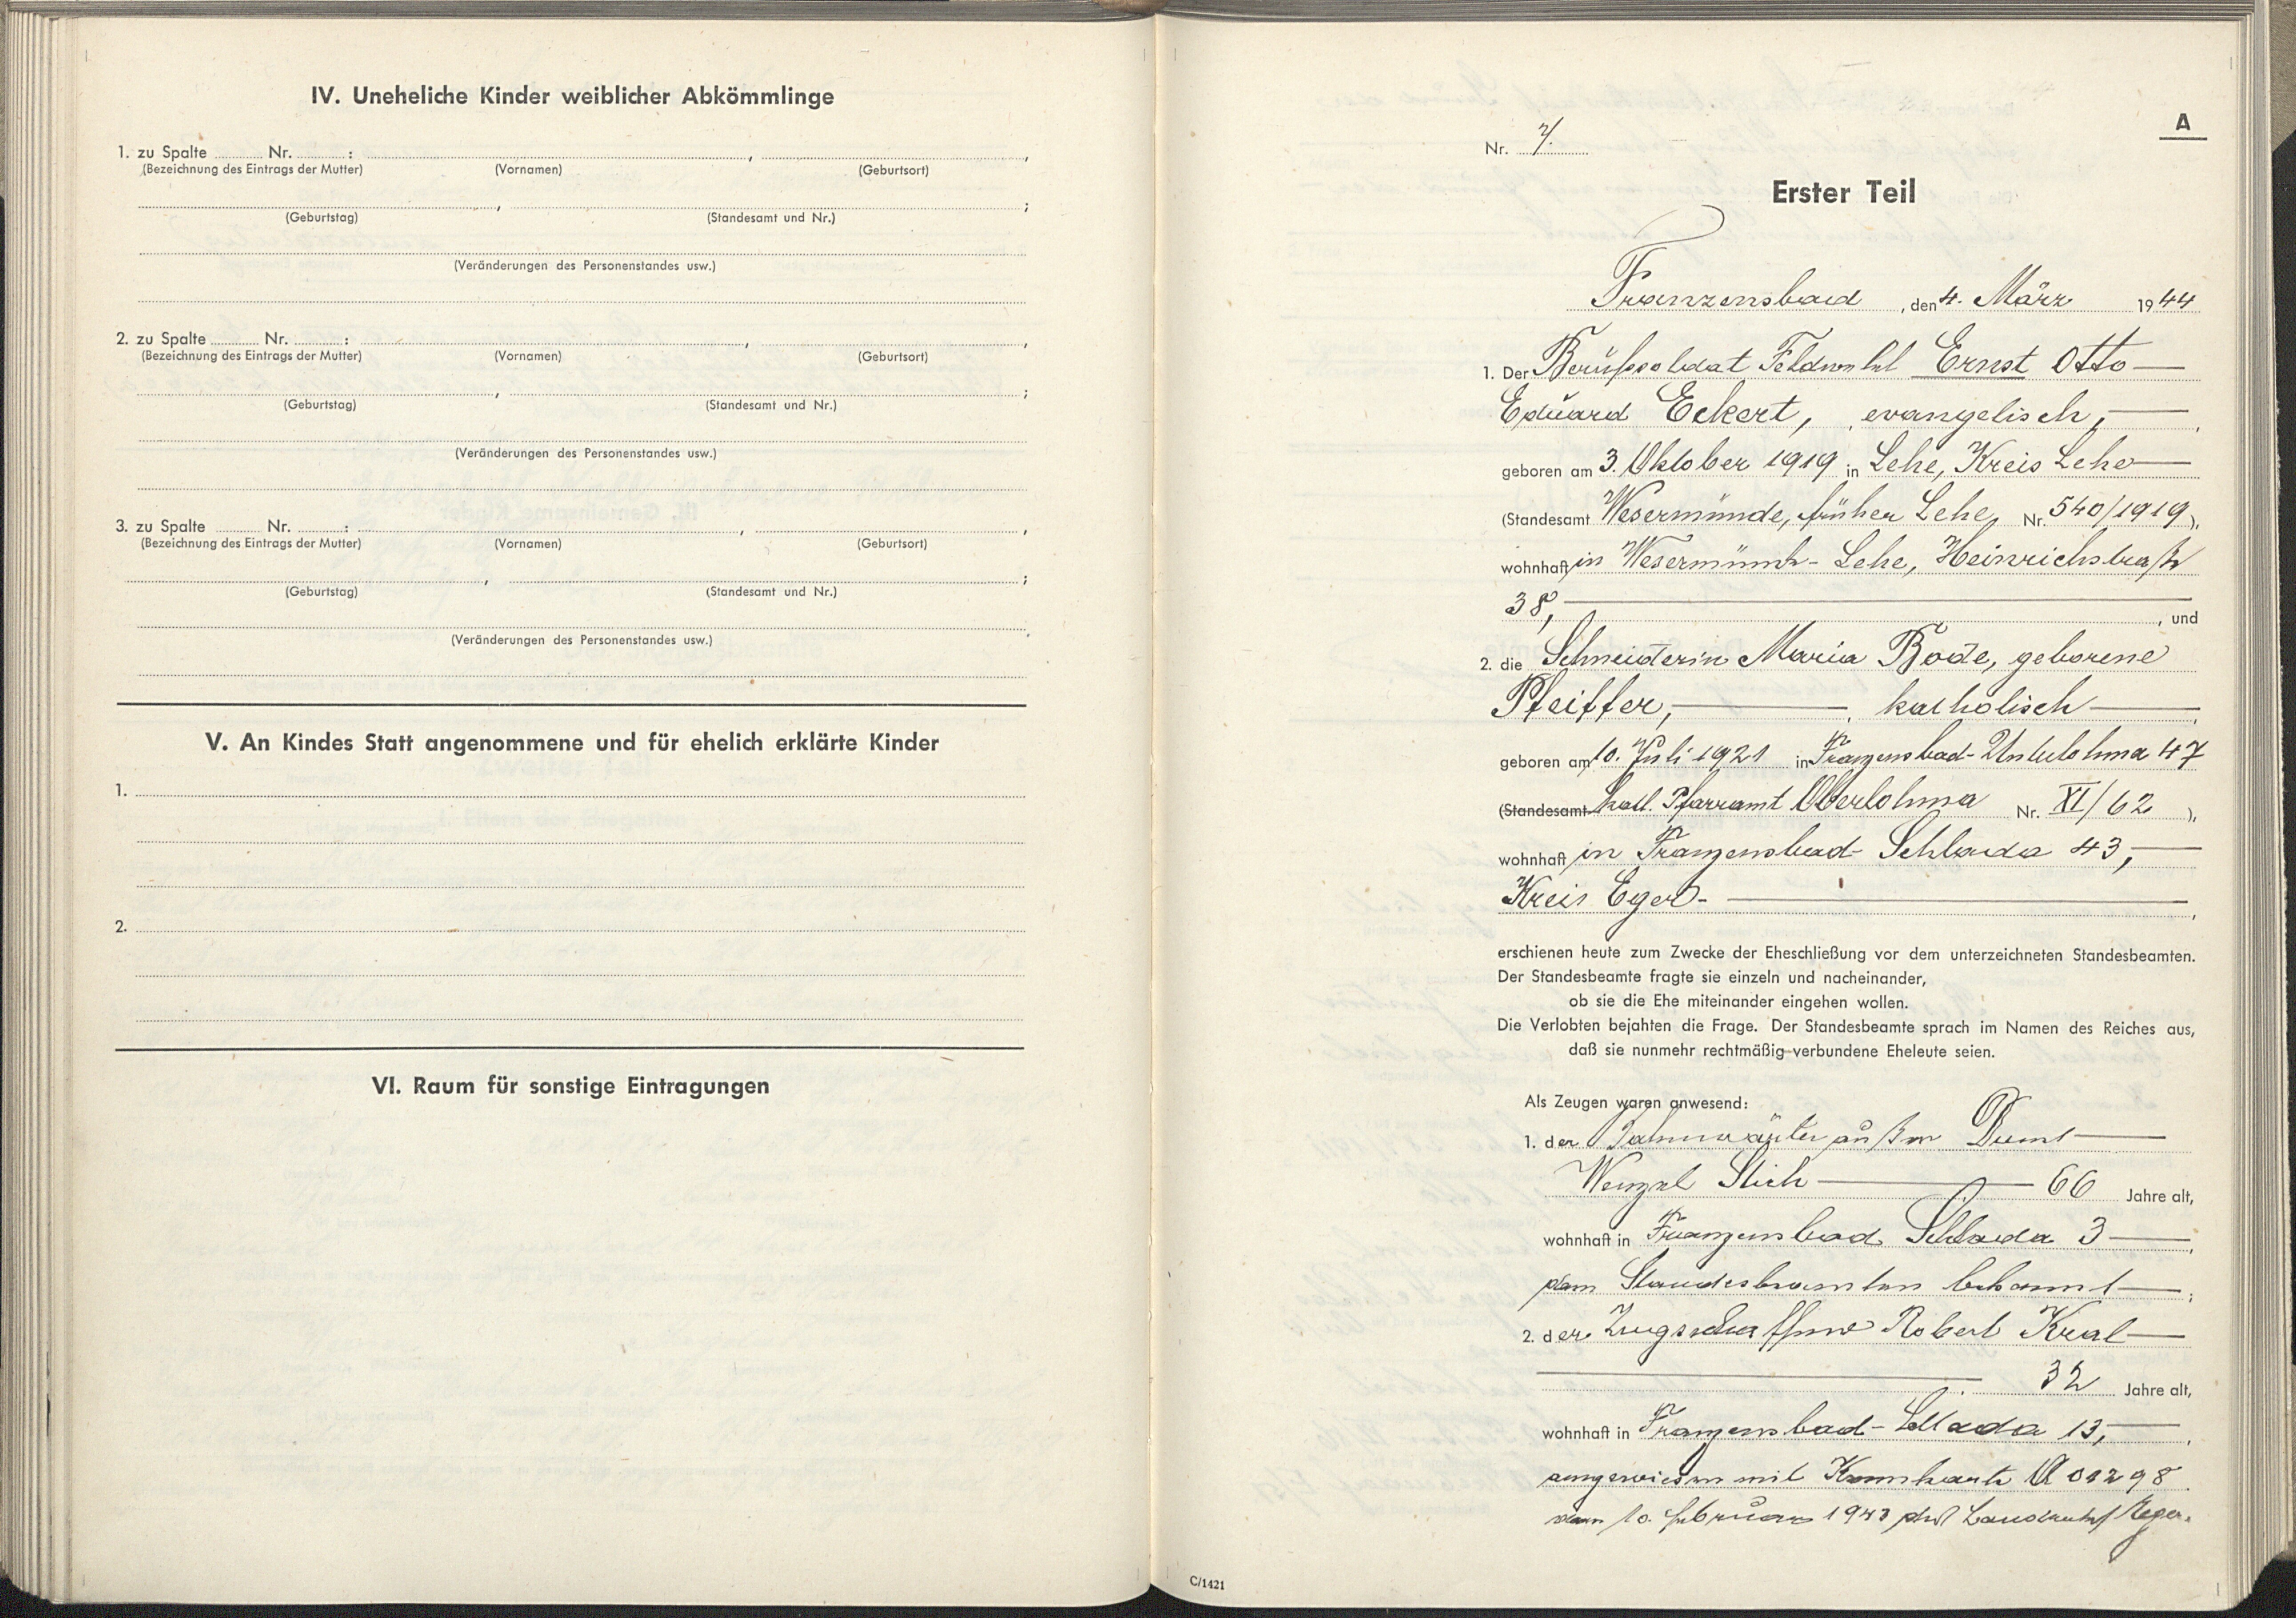 IV. Uneheliche Kinder weiblicher Abkömmlinge
1. zu Spalte ........ Nr. ........ : ........ , ........ ,
(Bezeichnung des Eintrags der Mutter) (Vornamen) (Geburtsort)
........ , ........ ;
(Geburtstag) (Standesamt und Nr.)
(Veränderungen des Personenstandes usw.)
2. zu Spalte ........ Nr. ........ : ........ , ........ ,
(Bezeichnung des Eintrags der Mutter) (Vornamen) (Geburtsort)
........ , ........ ;
(Geburtstag) (Standesamt und Nr.)
(Veränderungen des Personenstandes usw.)
3. zu Spalte ........ Nr. ........ : ........ , ........ ,
(Bezeichnung des Eintrags der Mutter) (Vornamen) (Geburtsort)
........ , ........ ;
(Geburtstag) (Standesamt und Nr.)
(Veränderungen des Personenstandes usw.)
V. An Kindes Statt angenommene und für ehelich erklärte Kinder
1.
2.
VI. Raum für sonstige Eintragungen
A
Nr. 7.
Erster Teil
Franzensbad, den 4. März 1944
1. Der Berufssoldat Feldwebel Ernst Otto
Eduard Eckert, evangelisch,
geboren am 3. Oktober 1919 in Lehe, Kreis Lehe
(Standesamt Wesermünde, früher Lehe, Nr. 540/1919),
wohnhaft in Wesermünde-Lehe, Heinrichstraße
38, , und
2. die Schneiderin Maria Bode, geborene
Pfeiffer, katholisch,
geboren am 10. Juli 1921 in Franzensbad-Unterlohma 47
(Standesamt kath. Pfarramt Oberlohma Nr. XI/62),
wohnhaft in Franzensbad-Schlada 43,
Kreis Eger-,
erschienen heute zum Zwecke der Eheschließung vor dem unterzeichneten Standesbeamten.
Der Standesbeamte fragte sie einzeln und nacheinander,
ob sie die Ehe miteinander eingehen wollen.
Die Verlobten bejahten die Frage. Der Standesbeamte sprach im Namen des Reiches aus,
daß sie nunmehr rechtmäßig verbundene Eheleute seien.
Als Zeugen waren anwesend:
1. der Bahnwärter außer Dienst
Wenzel Stich 66 Jahre alt,
wohnhaft in Franzensbad Schlada 3,
dem Standesbeamten bekannt;
2. der Zugschaffner Robert Kral
32 Jahre alt,
wohnhaft in Franzensbad-Schlada 13,
ausgewiesen mit Kennkarte A 01298
vom 10. Februar 1943 des Landrates Eger.
C/1421